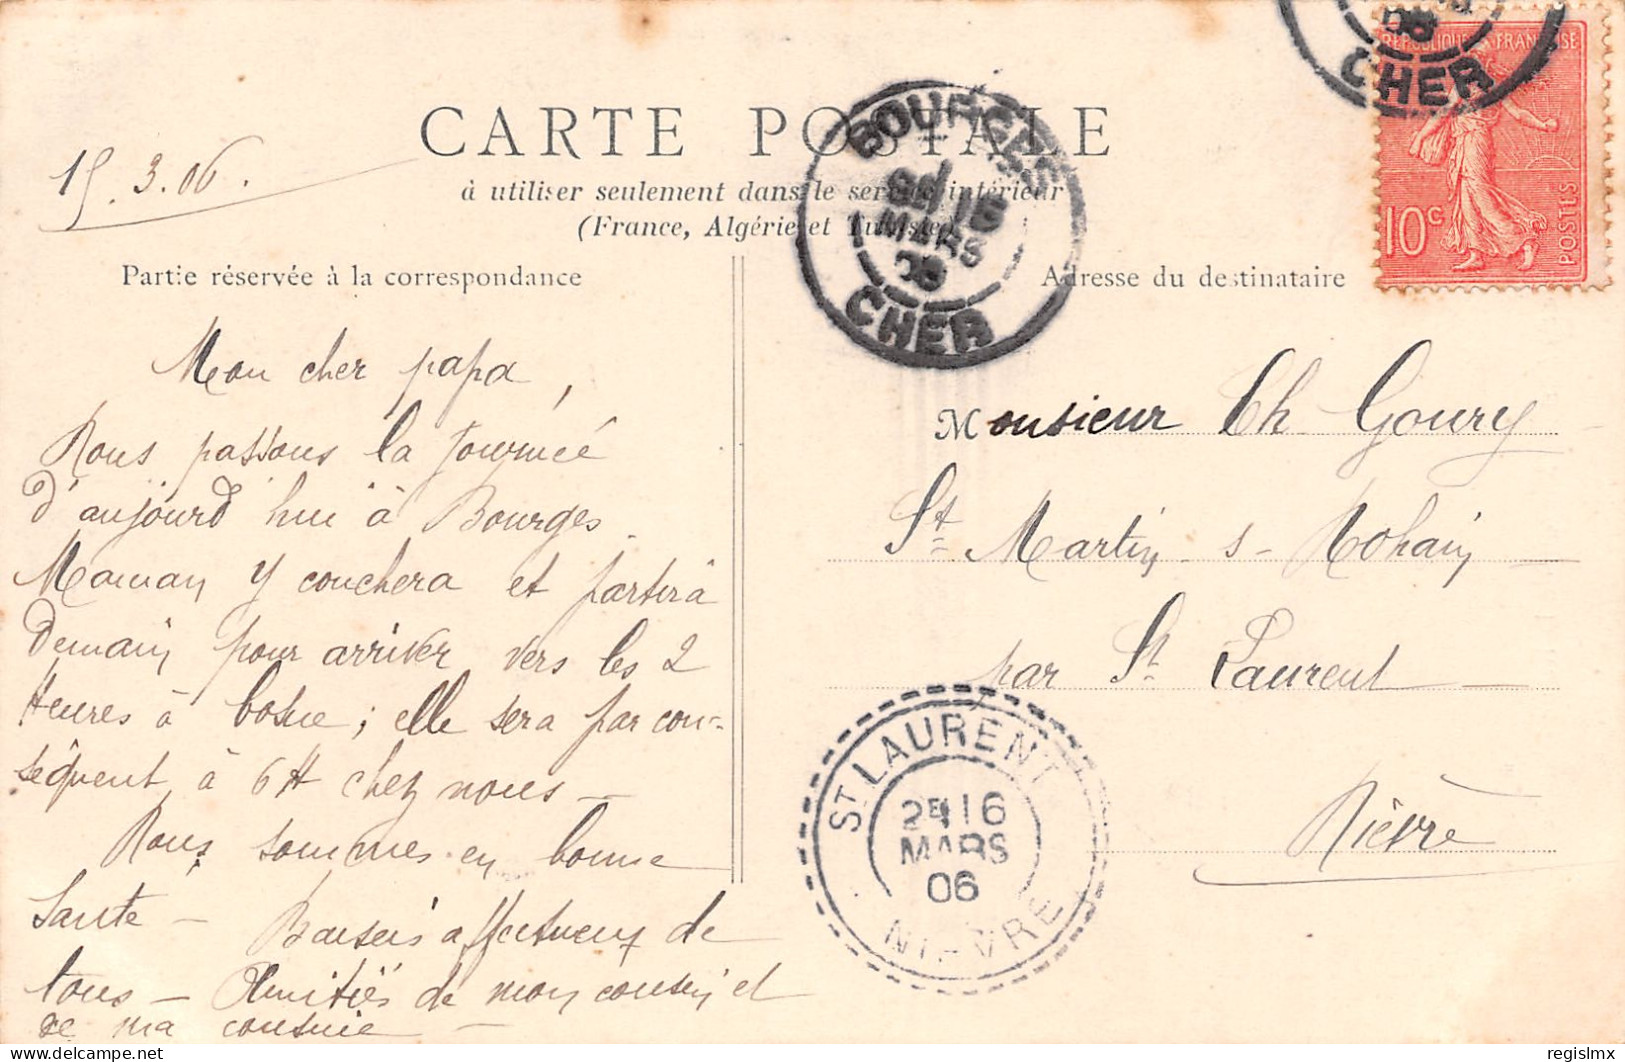 CARTE POSTALE
15.3.06.
à utiliser seulement dans le service intérieur
(France, Algérie et Tunisie)
Partie réservée à la correspondance
Mon cher papa,
Nous passons la journée
d'aujourd'hui à Bourges.
Maman y couchera et partira
demain pour arriver vers les 2
heures à Cosne; elle sera par con-
séquent à 6 H chez nous –
Nous sommes en bonne
santé – Baisers affectueux de
tous – Amitiés de mon cousin et
de ma cousine –
BOURGES
16
MARS
06
CHER
06
CHER
REPUBLIQUE FRANÇAISE
10c
POSTES
Adresse du destinataire
Monsieur Ch Goury
St Martin s- Nohain
par St Laurent
Nièvre
ST LAURENT
2E 16
MARS
06
NIEVRE
regislmx
delcampe.net